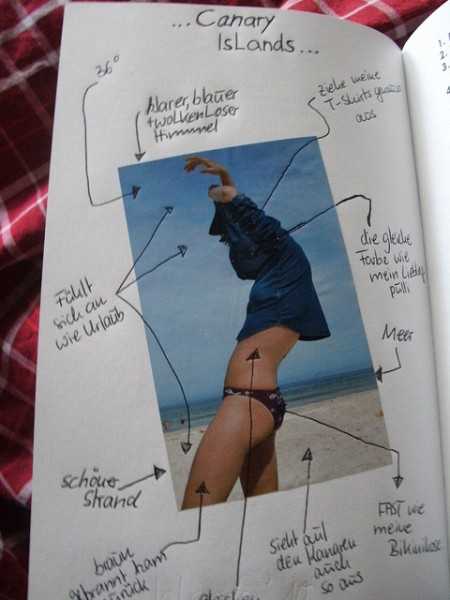 ...Canary
Islands...
36°
klarer, blauer
+ wolkenloser
Himmel
ziehe meine
T-Shirts genauso
aus
die gleiche
Farbe wie
mein Lieblings
pulli
Fühlt
sich an
wie Urlaub
Meer
schöner
Strand
FAST wie
meine
Bikinihose
sieht auf
den Kanaren
auch
so aus
braun
gebrannt kam
zurück
1.
2.
3.